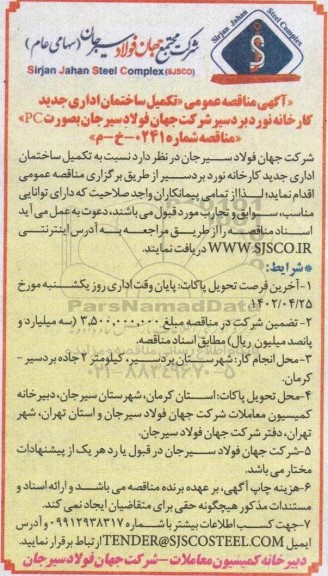 Sirjan Jahan Steel Complex
شرکت مجتمع جهان فولاد سیرجان (سهامی عام)
Sirjan Jahan Steel Complex (SJSCO)
«آگهی مناقصه عمومی «تکمیل ساختمان اداری جدید
کارخانه نورد بردسیر شرکت جهان فولاد سیرجان بصورت PC»
«مناقصه شماره ۰۲۴۱-خ-م»
شرکت جهان فولاد سیرجان در نظر دارد نسبت به تکمیل ساختمان
اداری جدید کارخانه نورد بردسیر از طریق برگزاری مناقصه عمومی
اقدام نماید؛ لذا از تمامی پیمانکاران واجد صلاحیت که دارای توانایی
مناسب، سوابق و تجارب مورد قبول می باشند، دعوت به عمل می آید
اسناد مناقصه را از طریق مراجعه به آدرس اینترنتی
WWW.SJSCO.IR دریافت نمایند.
*شرایط:
۱-آخرین فرصت تحویل پاکات: پایان وقت اداری روز یکشنبه مورخ
۱۴۰۲/۰۴/۲۵
۲- تضمین شرکت در مناقصه مبلغ ۳,۵۰۰,۰۰۰,۰۰۰ (سه میلیارد و
پانصد میلیون ریال) مطابق اسناد مناقصه.
۳-محل انجام کار: شهرستان بردسیر، کیلومتر ۲ جاده بردسیر -
کرمان.
۴-محل تحویل پاکات: استان کرمان، شهرستان سیرجان، دبیرخانه
کمیسیون معاملات شرکت جهان فولاد سیرجان و استان تهران، شهر
تهران، دفتر شرکت جهان فولاد سیرجان.
۵-شرکت جهان فولاد سیرجان در قبول یا رد هر یک از پیشنهادات
مختار می باشد.
۶-هزینه چاپ آگهی، بر عهده برنده مناقصه می باشد و ارائه اسناد و
مستندات مذکور هیچگونه حقی برای متقاضیان ایجاد نمی کند.
۷-جهت کسب اطلاعات بیشتر با شماره ۰۹۹۱۲۹۳۸۳۱۷ و آدرس
ایمیل TENDER@SJSCOSTEEL.COM ارتباط برقرار نمایید.
دبیرخانه کمیسیون معاملات - شرکت جهان فولاد سیرجان
ParsNamadData
۰۲۱-۸۸۳۴۹۶۷۰-۵